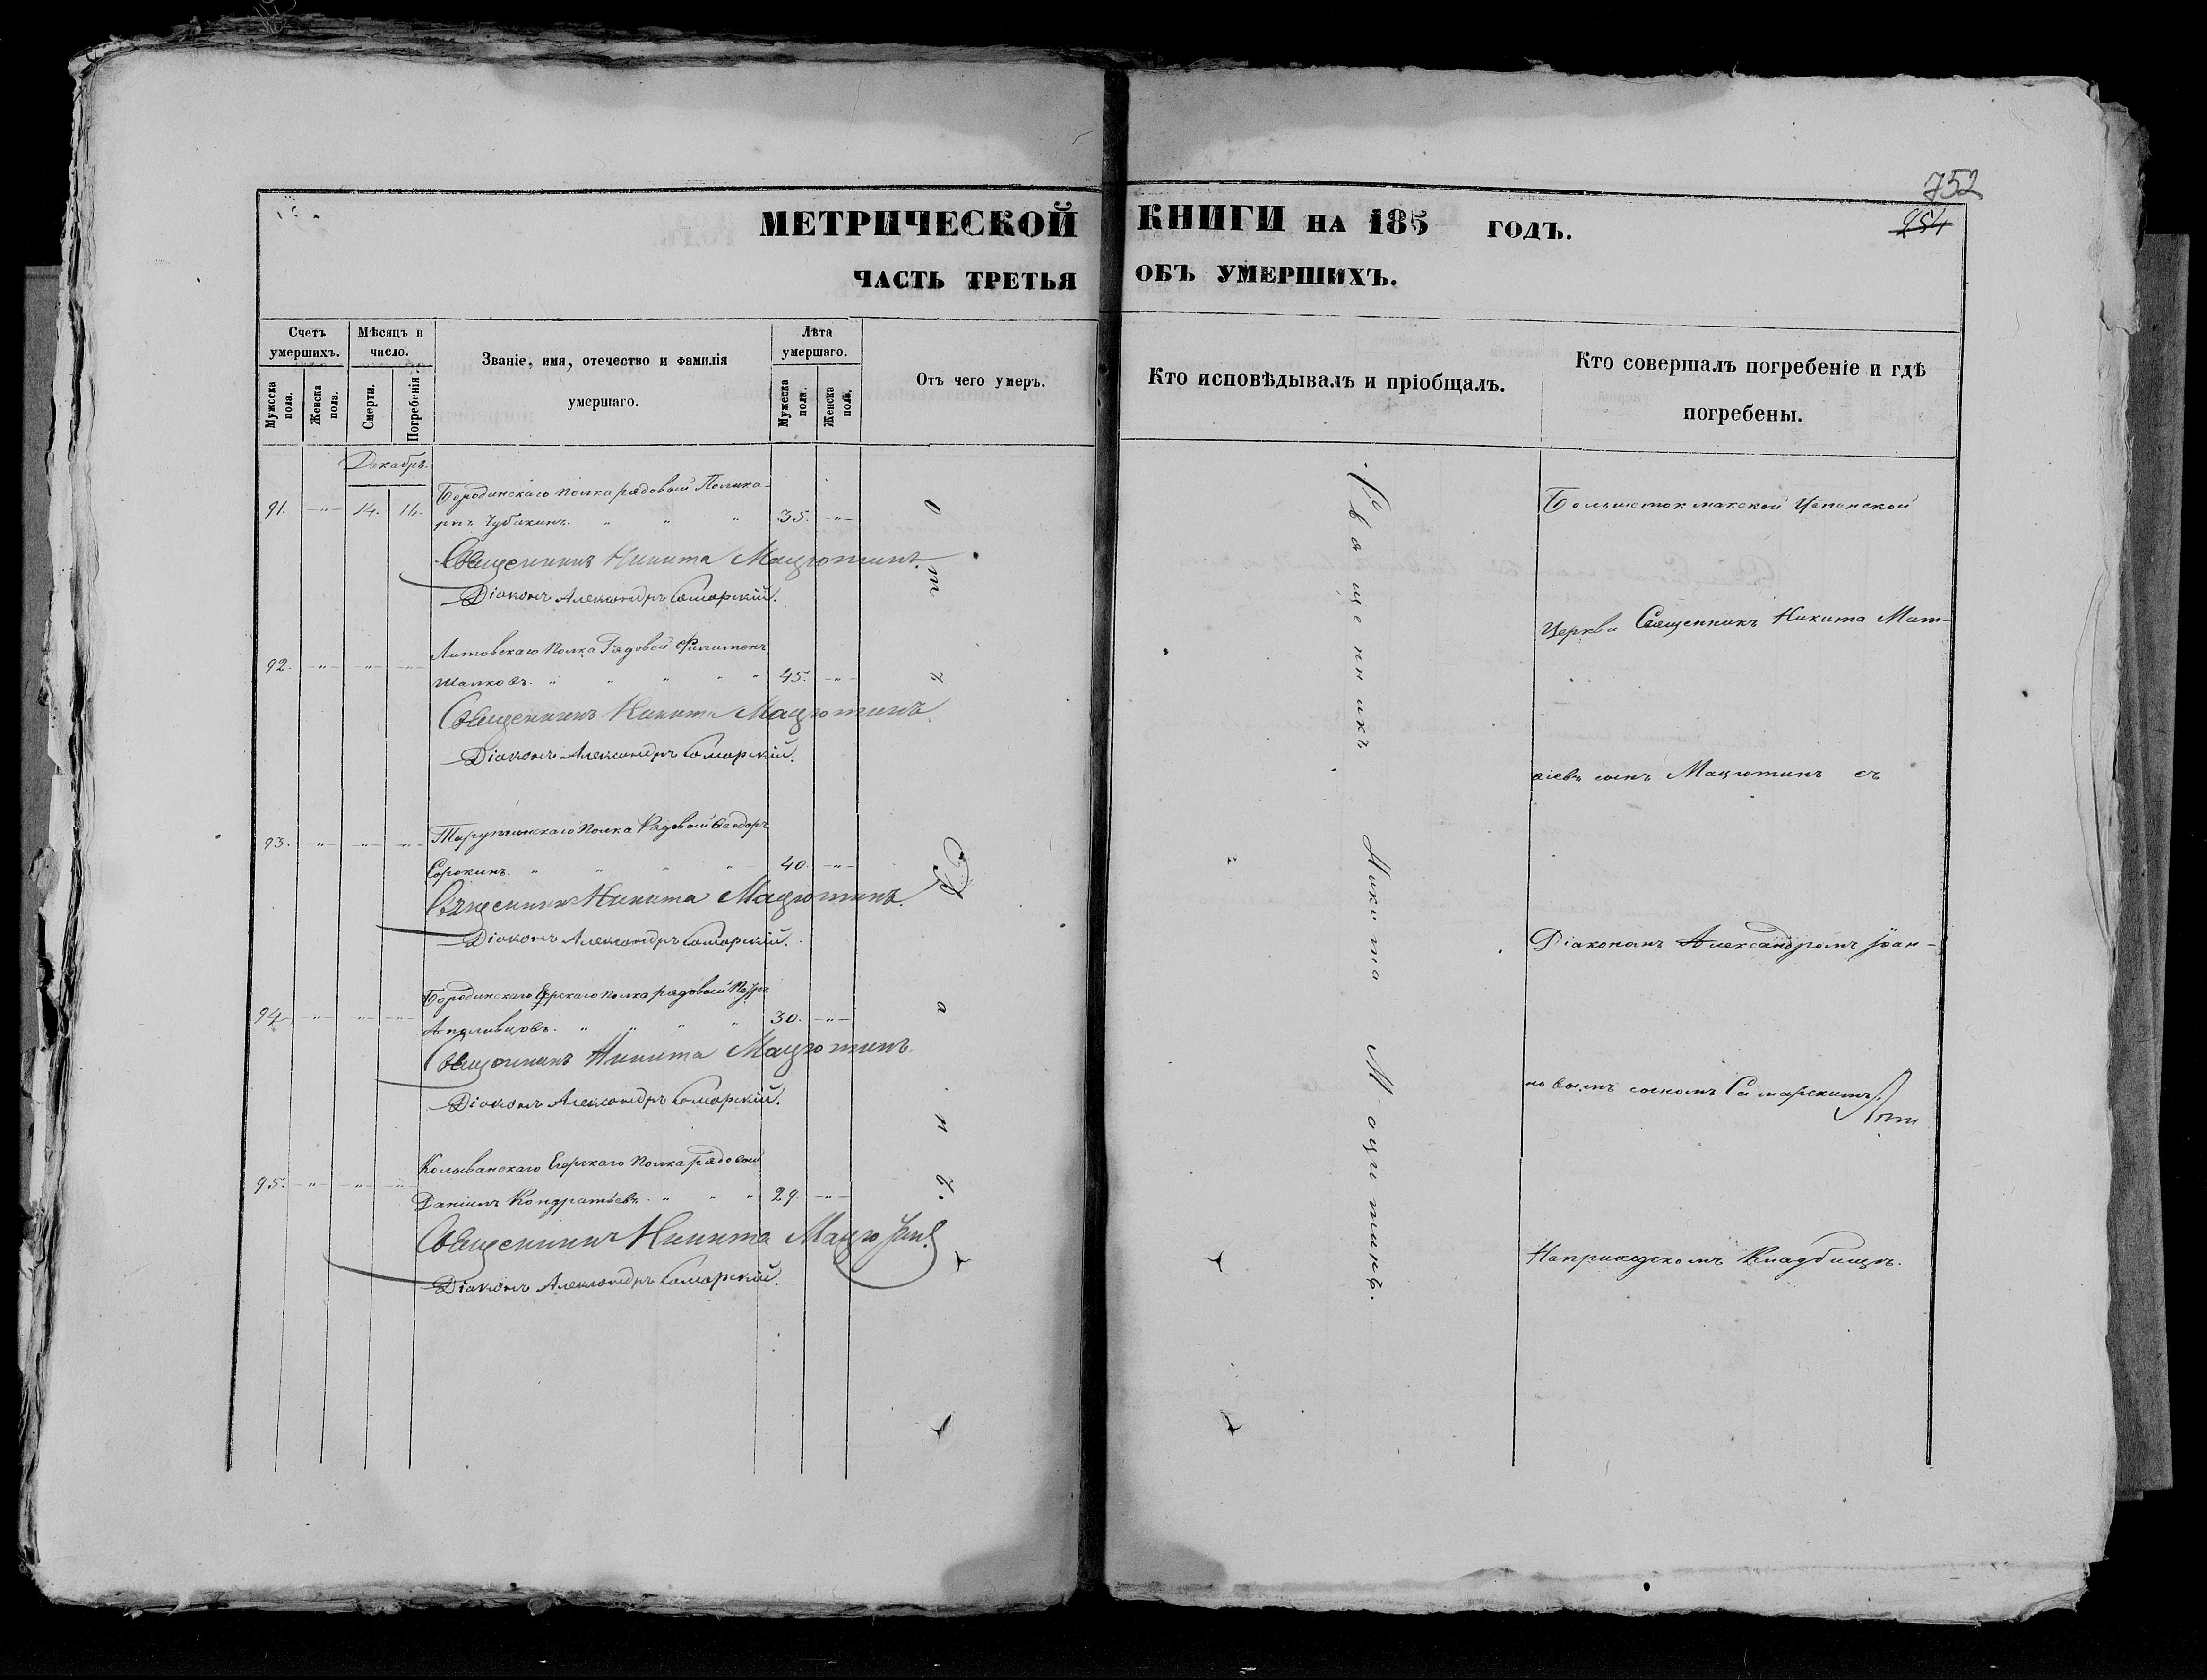 752
254
МЕТРИЧЕСКОЙ КНИГИ НА 185 ГОДЪ.
ЧАСТЬ ТРЕТЬЯ ОБЪ УМЕРШИХЪ.
Счетъ умершихъ.
Мужеска пола.
Женска пола.
Мѣсяцъ и число.
Смерти.
Погребенія.
Званіе, имя, отечество и фамилія умершаго.
Лѣта умершаго.
Мужеска пола.
Женска пола.
Отъ чего умеръ.
Кто исповѣдывалъ и пріобщалъ.
Кто совершалъ погребеніе и гдѣ погребены.
Декабрь.
Бородинскаго полка рядовый Полика-
91. -"- 14. 16. рпъ Чубакинъ. " " " 35. -"-
Священникъ Никита Мацютинъ.
Діаконъ Александръ Самарскій.
Литовскаго Полка Рядовой Филимонъ
92. -"- -"- -"- Шалковъ. " " " " " 45. -"-
Священникъ Никита Мацютинъ.
Діаконъ Александръ Самарскій.
Тарутинскаго Полка Рядовый Ѳеодоръ
93. -"- -"- -"- Сорокинъ. " " " " 40. -"-
Священникъ Никита Мацютинъ.
Діаконъ Александръ Самарскій.
Бородинскаго Егерскаго полка рядовый Петръ
94. -"- -"- -"- " " " " 30. -"-
Священникъ Никита Мацютинъ.
Діаконъ Александръ Самарскій.
Колыванскаго Егерскаго Полка рядовый
95. -"- -"- -"- Даніилъ Кондратьевъ. " " " 29. -"-
Священникъ Никита Мацютинъ
Діаконъ Александръ Самарскій.
Отъ Ранъ.
Священникъ Никита Мацютинъ.
Большетокмакской Успенской
Церкви Священникъ Никита Мат-
ѳіевъ сынъ Мацютинъ съ
Діакономъ Александромъ Іоан-
новымъ сыномъ Самарскимъ.
На приходскомъ Кладбищѣ.